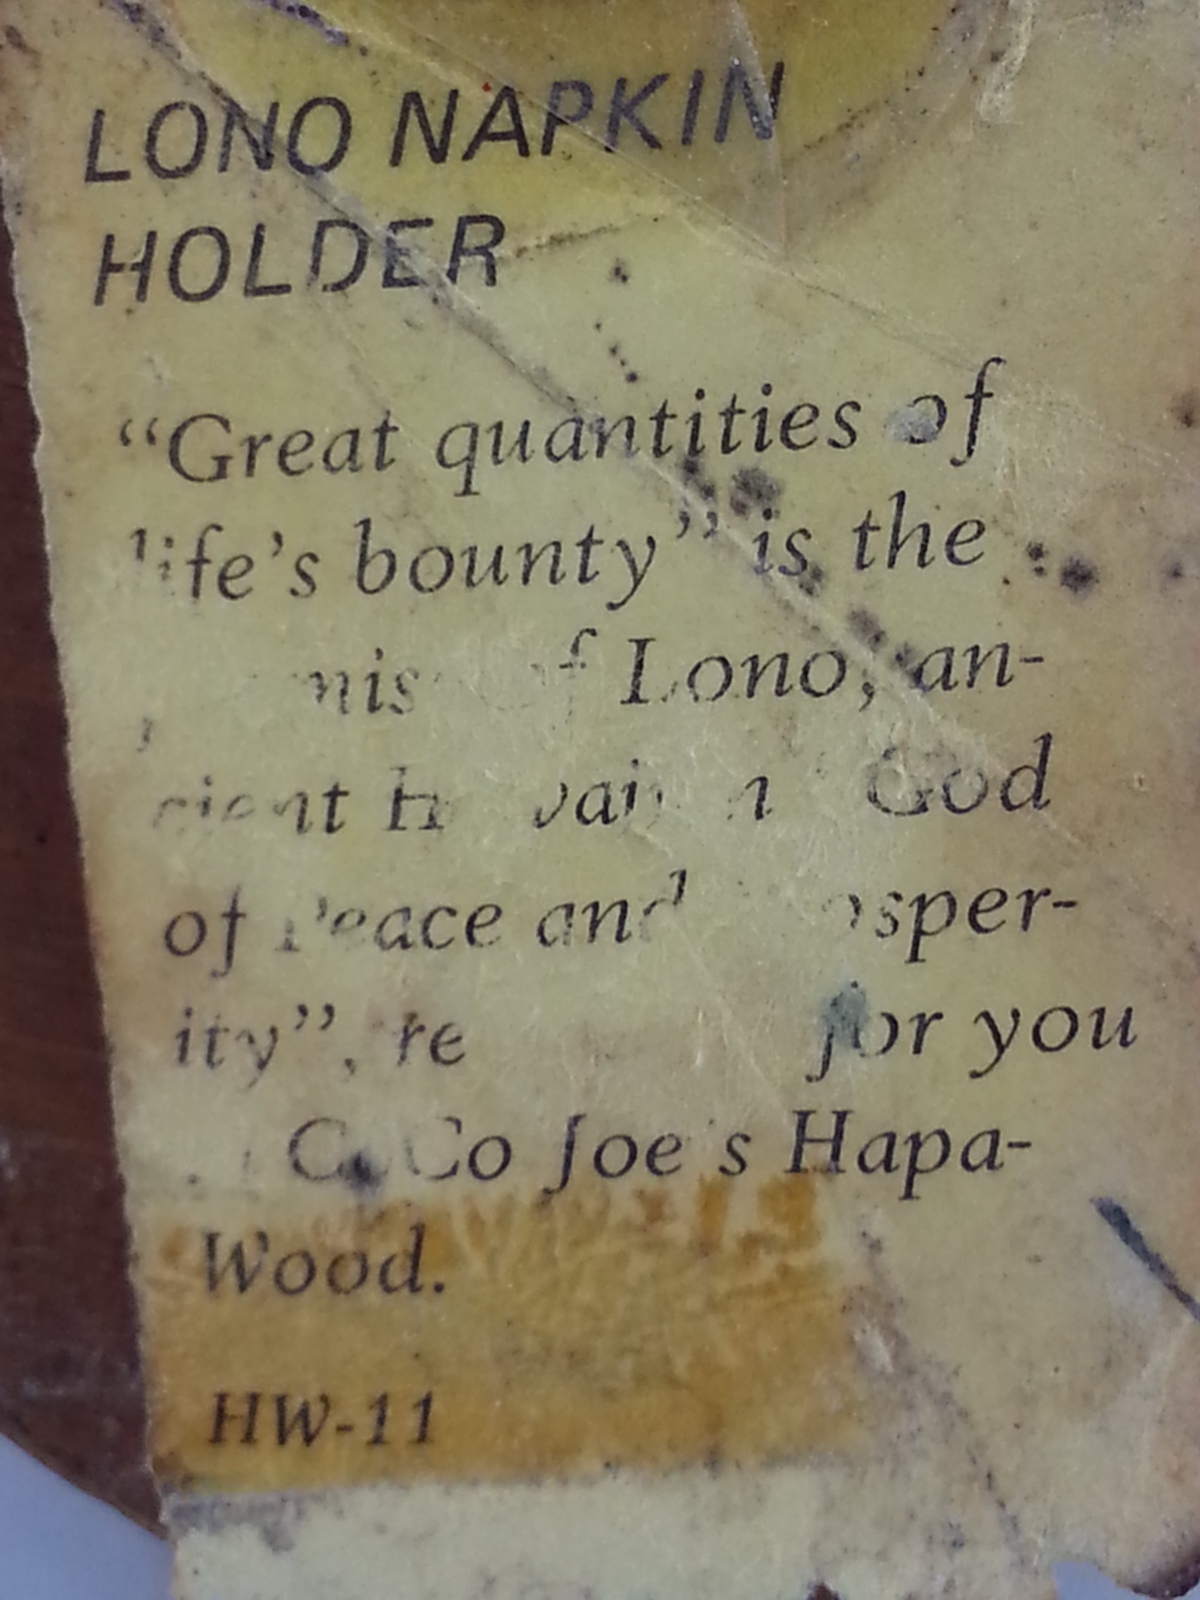 LONO NAPKIN
HOLDER
"Great quantities of
life's bounty" is the
of Lono, an-
cient Hawaiian God
of Peace and Prosper-
ity", for you
Co Co Joe's Hapa-
Wood.
HW-11